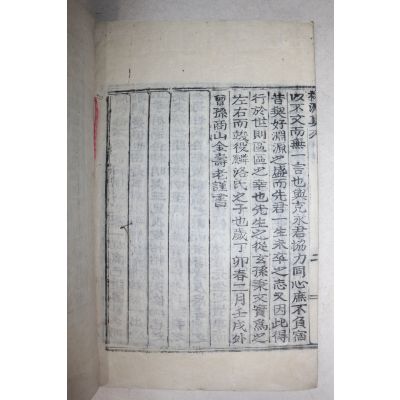 以不文而無一言也與克永君協力同心庶不負宿
昔與好淵源之盛而先君一生未卒之志又因此得
行於世則區區之幸也先生之從玄孫秉文實爲之
左右而敦役麟洛氏之子也歲丁卯春二月壬戌外
曾孫商山金壽老謹書